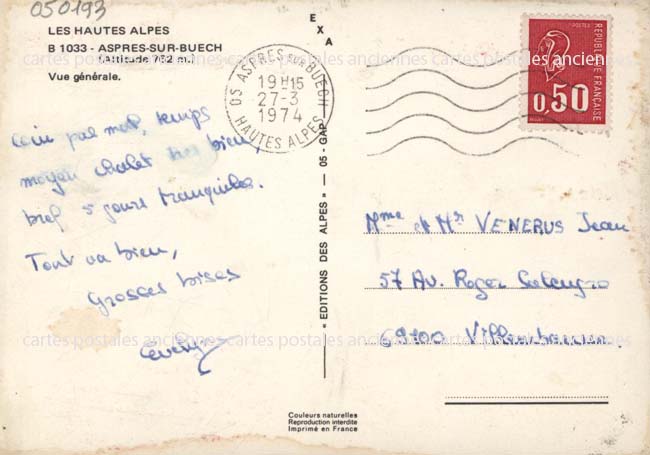 050193
LES HAUTES ALPES
B 1033 - ASPRES-SUR-BUECH
(Altitude 762 m.)
Vue générale.
EXA
05 ASPRES SUR BUECH
19H15
27-3
1974
HAUTES ALPES
REPUBLIQUE FRANÇAISE
0,50
Coin pas mal, temps
moyen chalet très bien,
bref 5 jours tranquiles.
Tout va bien,
Grosses bises
« EDITIONS DES ALPES » — 05 - GAP
Mme et Mr VENERUS Jean
57 Av. Roger Salengro
69100 Villeurbanne.
cartes postales anciennes cartes postales anciennes cartes postales anciennes
Couleurs naturelles
Reproduction interdite
Imprimé en France